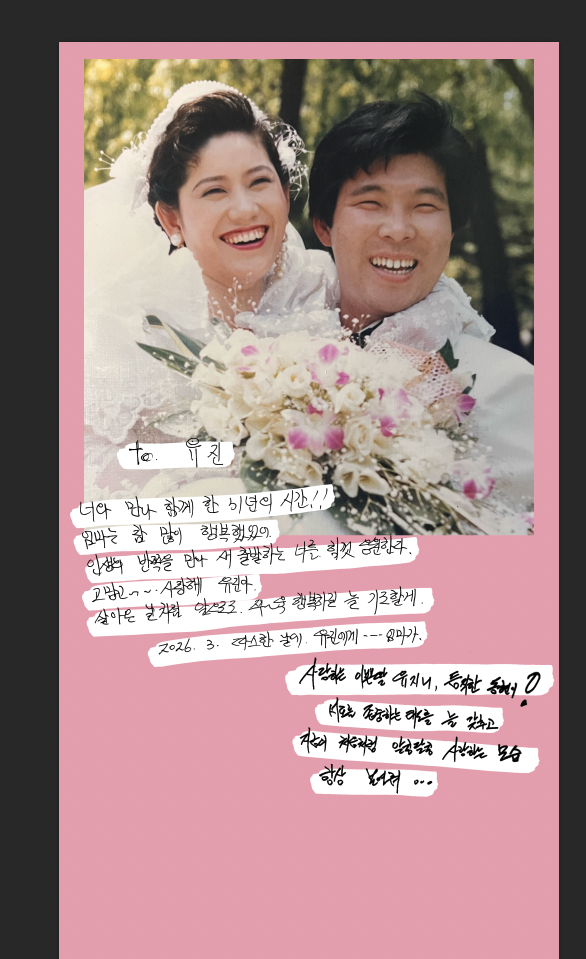 to. 유진
너와 만나 함께 한 31년의 시간!!
엄마는 참 많이 행복했었어.
인생의 반쪽을 만나 새 출발하는 너를 힘껏 응원한다.
고맙고~~ 사랑해 유진아.
살아온 날처럼 앞으로도 쭈~욱 행복하길 늘 기도할게.
2026. 3. 따스한 날에. 유진이에게 --- 엄마가.
사랑하는 이쁜딸 유지니, 듬직한
서로 존중하는 태도를 늘 갖추고
지금의 처럼 알콩달콩 사랑하는 모습
항상 보여줘 ...